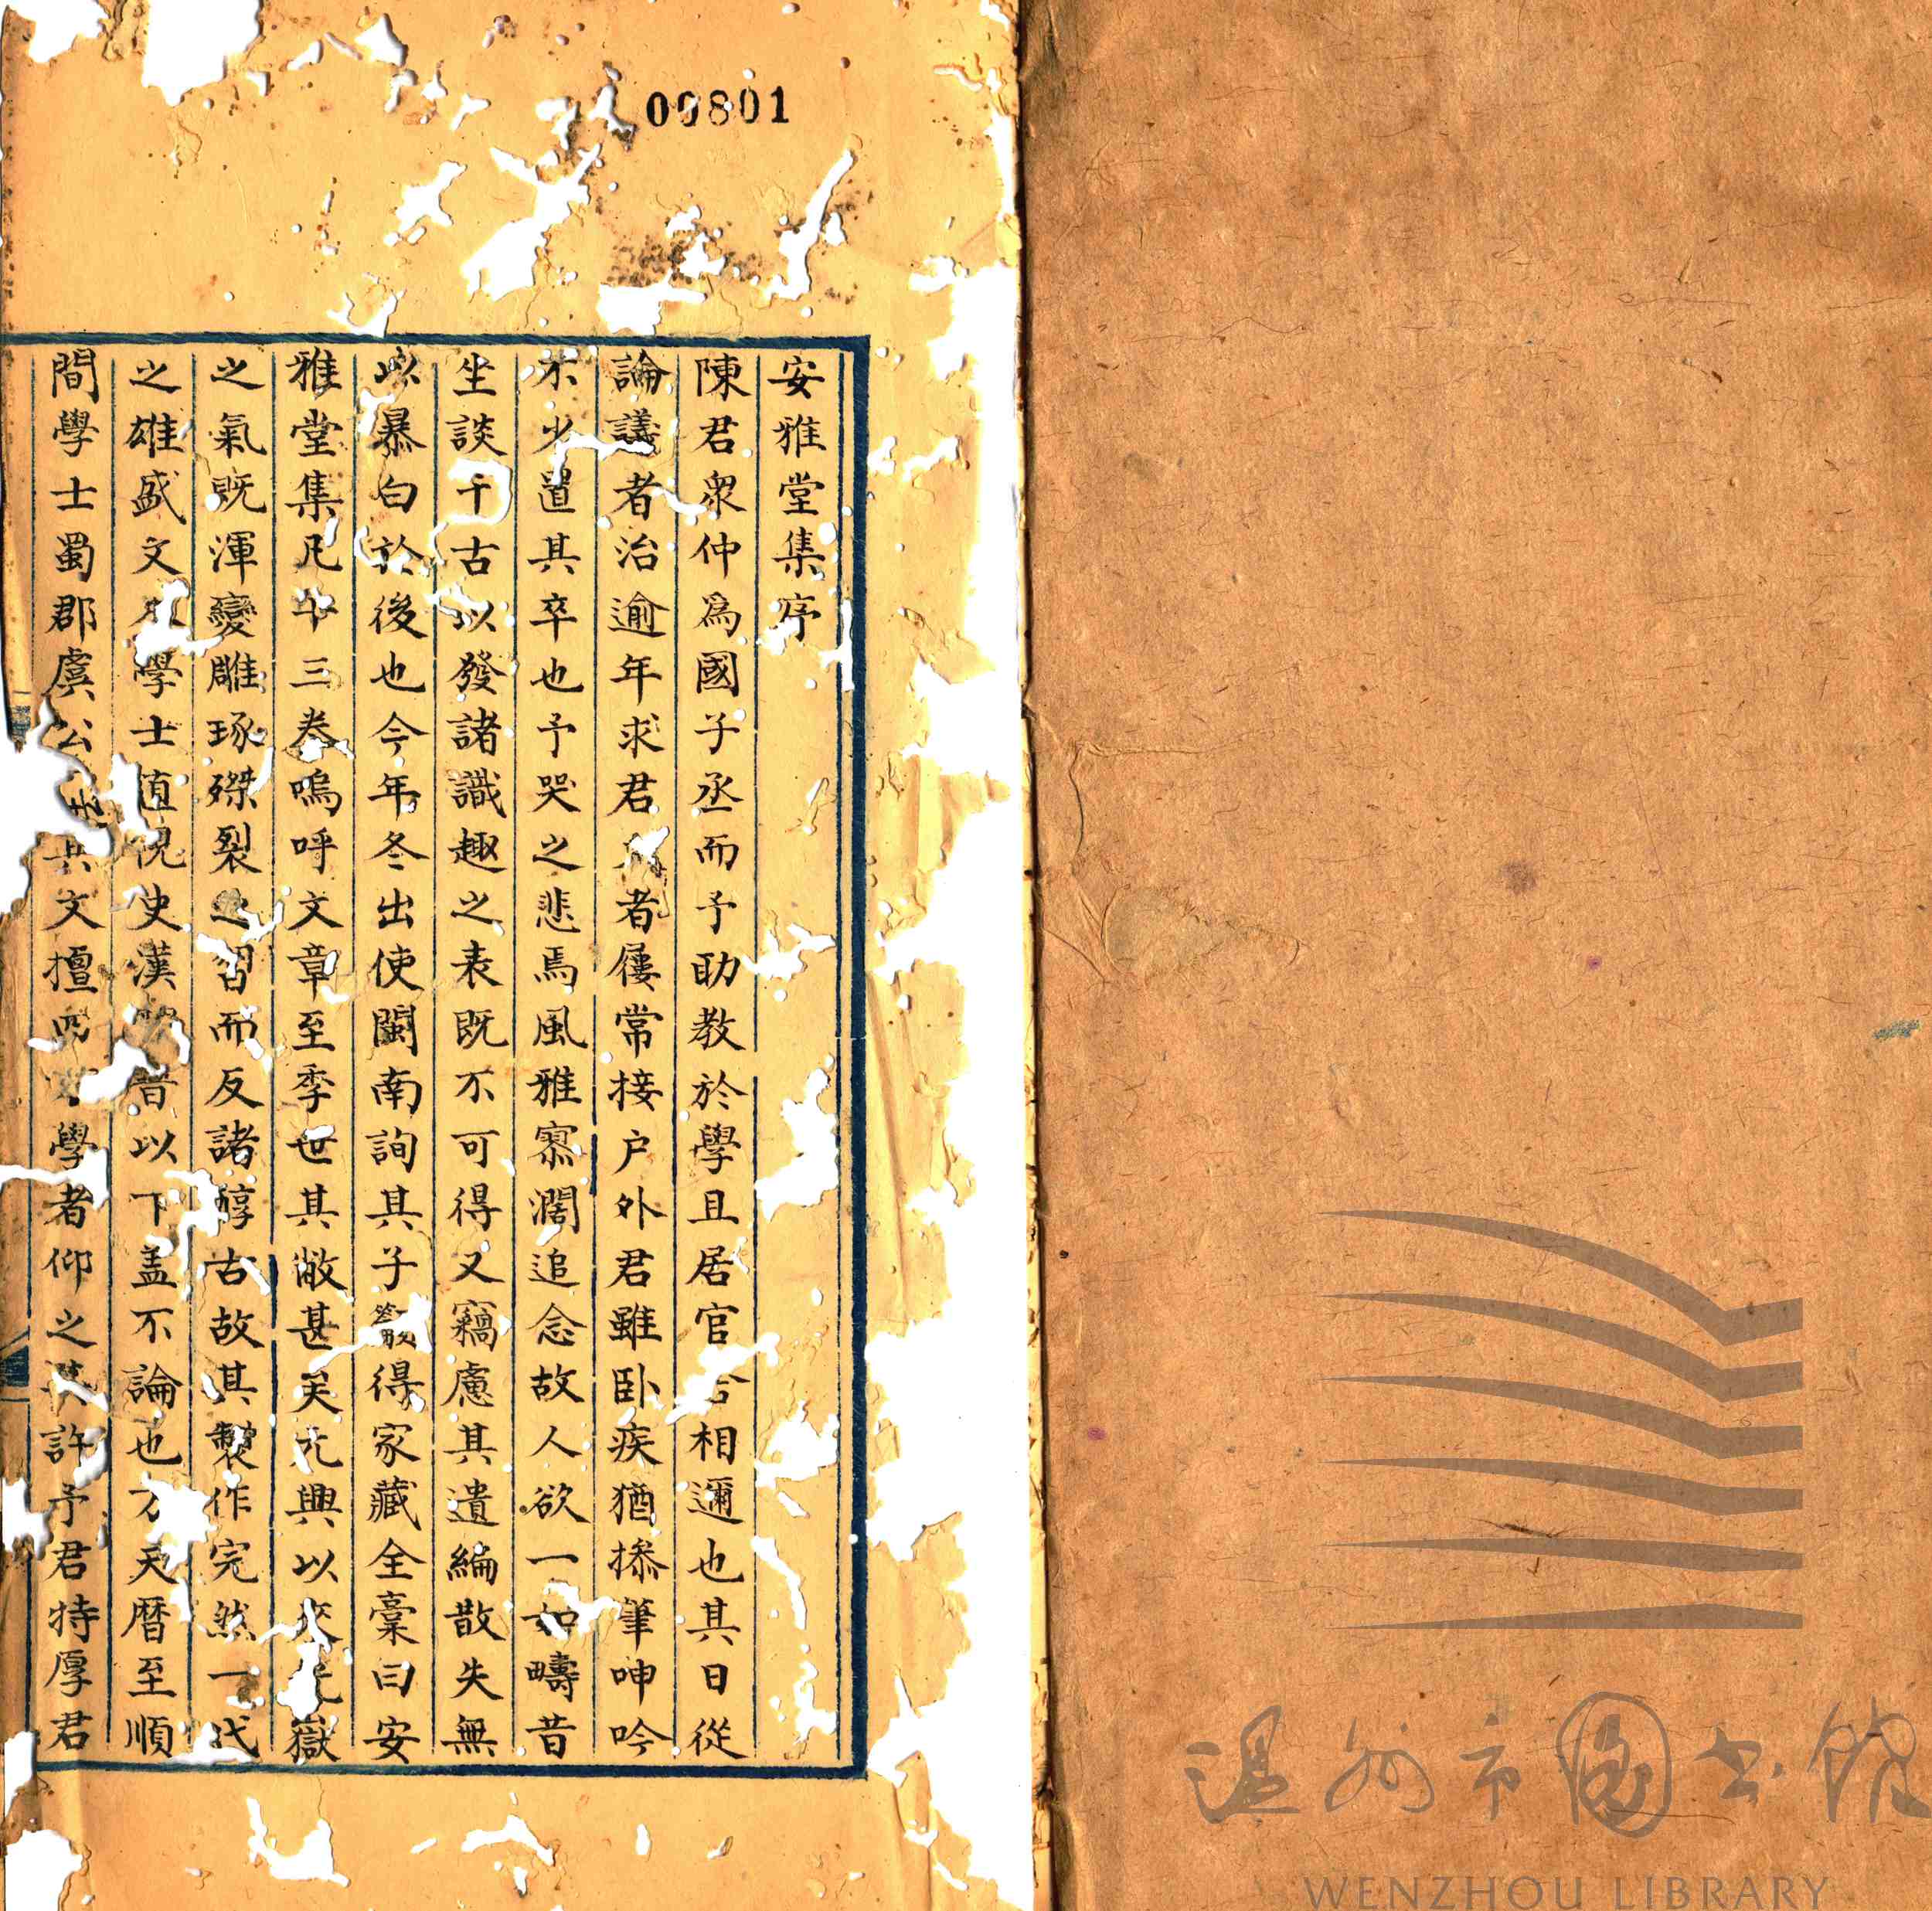 00801
安雅堂集序
陳君衆仲爲國子丞而予助教於學且居官相邇也其日從
論議者治逾年求君者屨常接户外君雖卧疾猶操筆呻吟
不少置其卒也予哭之悲焉風雅寥濶追念故人欲一如疇昔
坐談千古以發諸識趣之表既不可得又竊慮其遺編散失無
以暴白於後也今年冬出使閩南詢其子籲得家藏全稾曰安
雅堂集凡十三卷嗚呼文章至季世其敝甚矣元興以來光嶽
之氣既渾變雕琢磔裂之習而反諸醇古故其製作完然一代
之雄盛文學士直視史漢昔以下盖不論也方天曆至順
間學士蜀郡虞公以其文擅四方學者仰之其許予君特厚君
温州市图书馆
WENZHOU LIBRARY